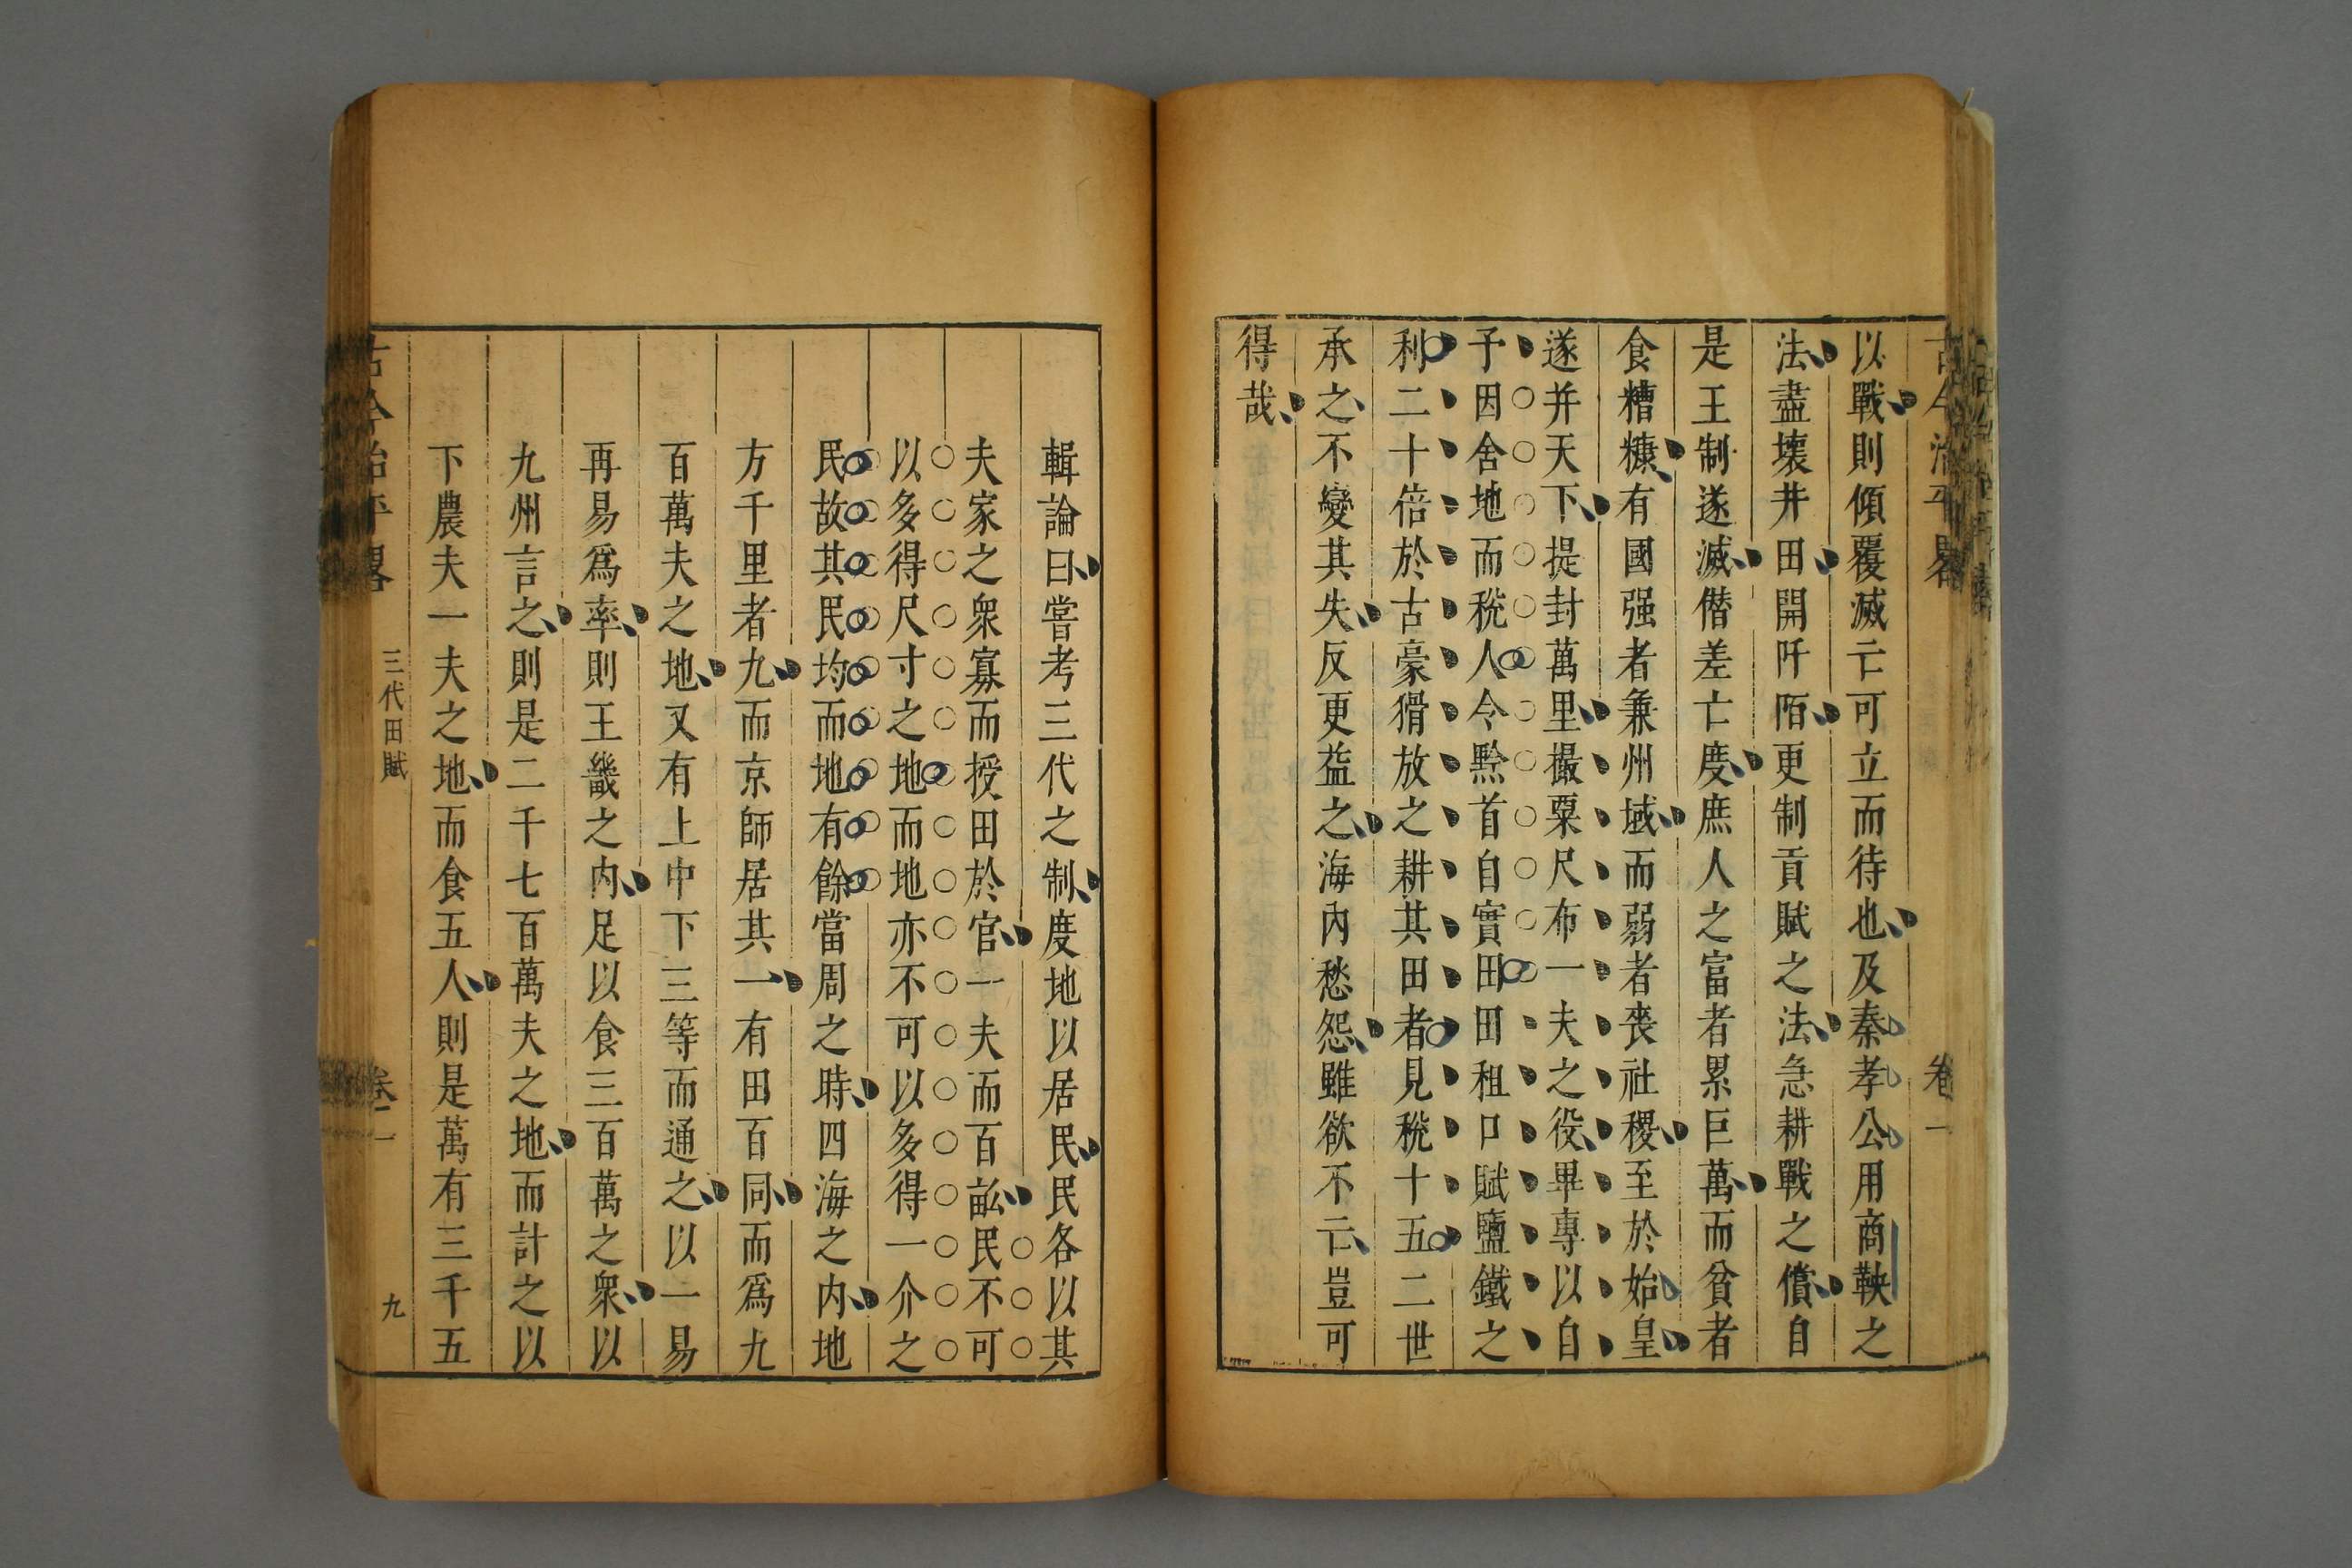 古今治平畧
卷一
以戰則傾覆滅亡可立而待也及秦孝公用商鞅之
法盡壞井田開阡陌更制貢賦之法急耕戰之償自
是王制遂滅僭差亡度庶人之富者累巨萬而貧者
食糟糠有國强者兼州域而弱者喪社稷至於始皇
遂并天下提封萬里撮粟尺布一夫之役畢專以自
予因舍地而稅人令黔首自實田田租口賦鹽鐵之
利二十倍於古豪猾放之耕其田者見稅十五二世
承之不變其失反更益之海內愁怨雖欲不亡豈可
得哉
輯論曰嘗考三代之制度地以居民民各以其
夫家之衆寡而授田於官一夫而百畝民不可
以多得尺寸之地而地亦不可以多得一介之
民故其民均而地有餘當周之時四海之內地
方千里者九而京師居其一有田百同而爲九
百萬夫之地又有上中下三等而通之以一易
再易爲率則王畿之內足以食三百萬之衆以
九州言之則是二千七百萬夫之地而計之以
下農夫一夫之地而食五人則是萬有三千五
古今治平畧
三代田賦
卷一
九